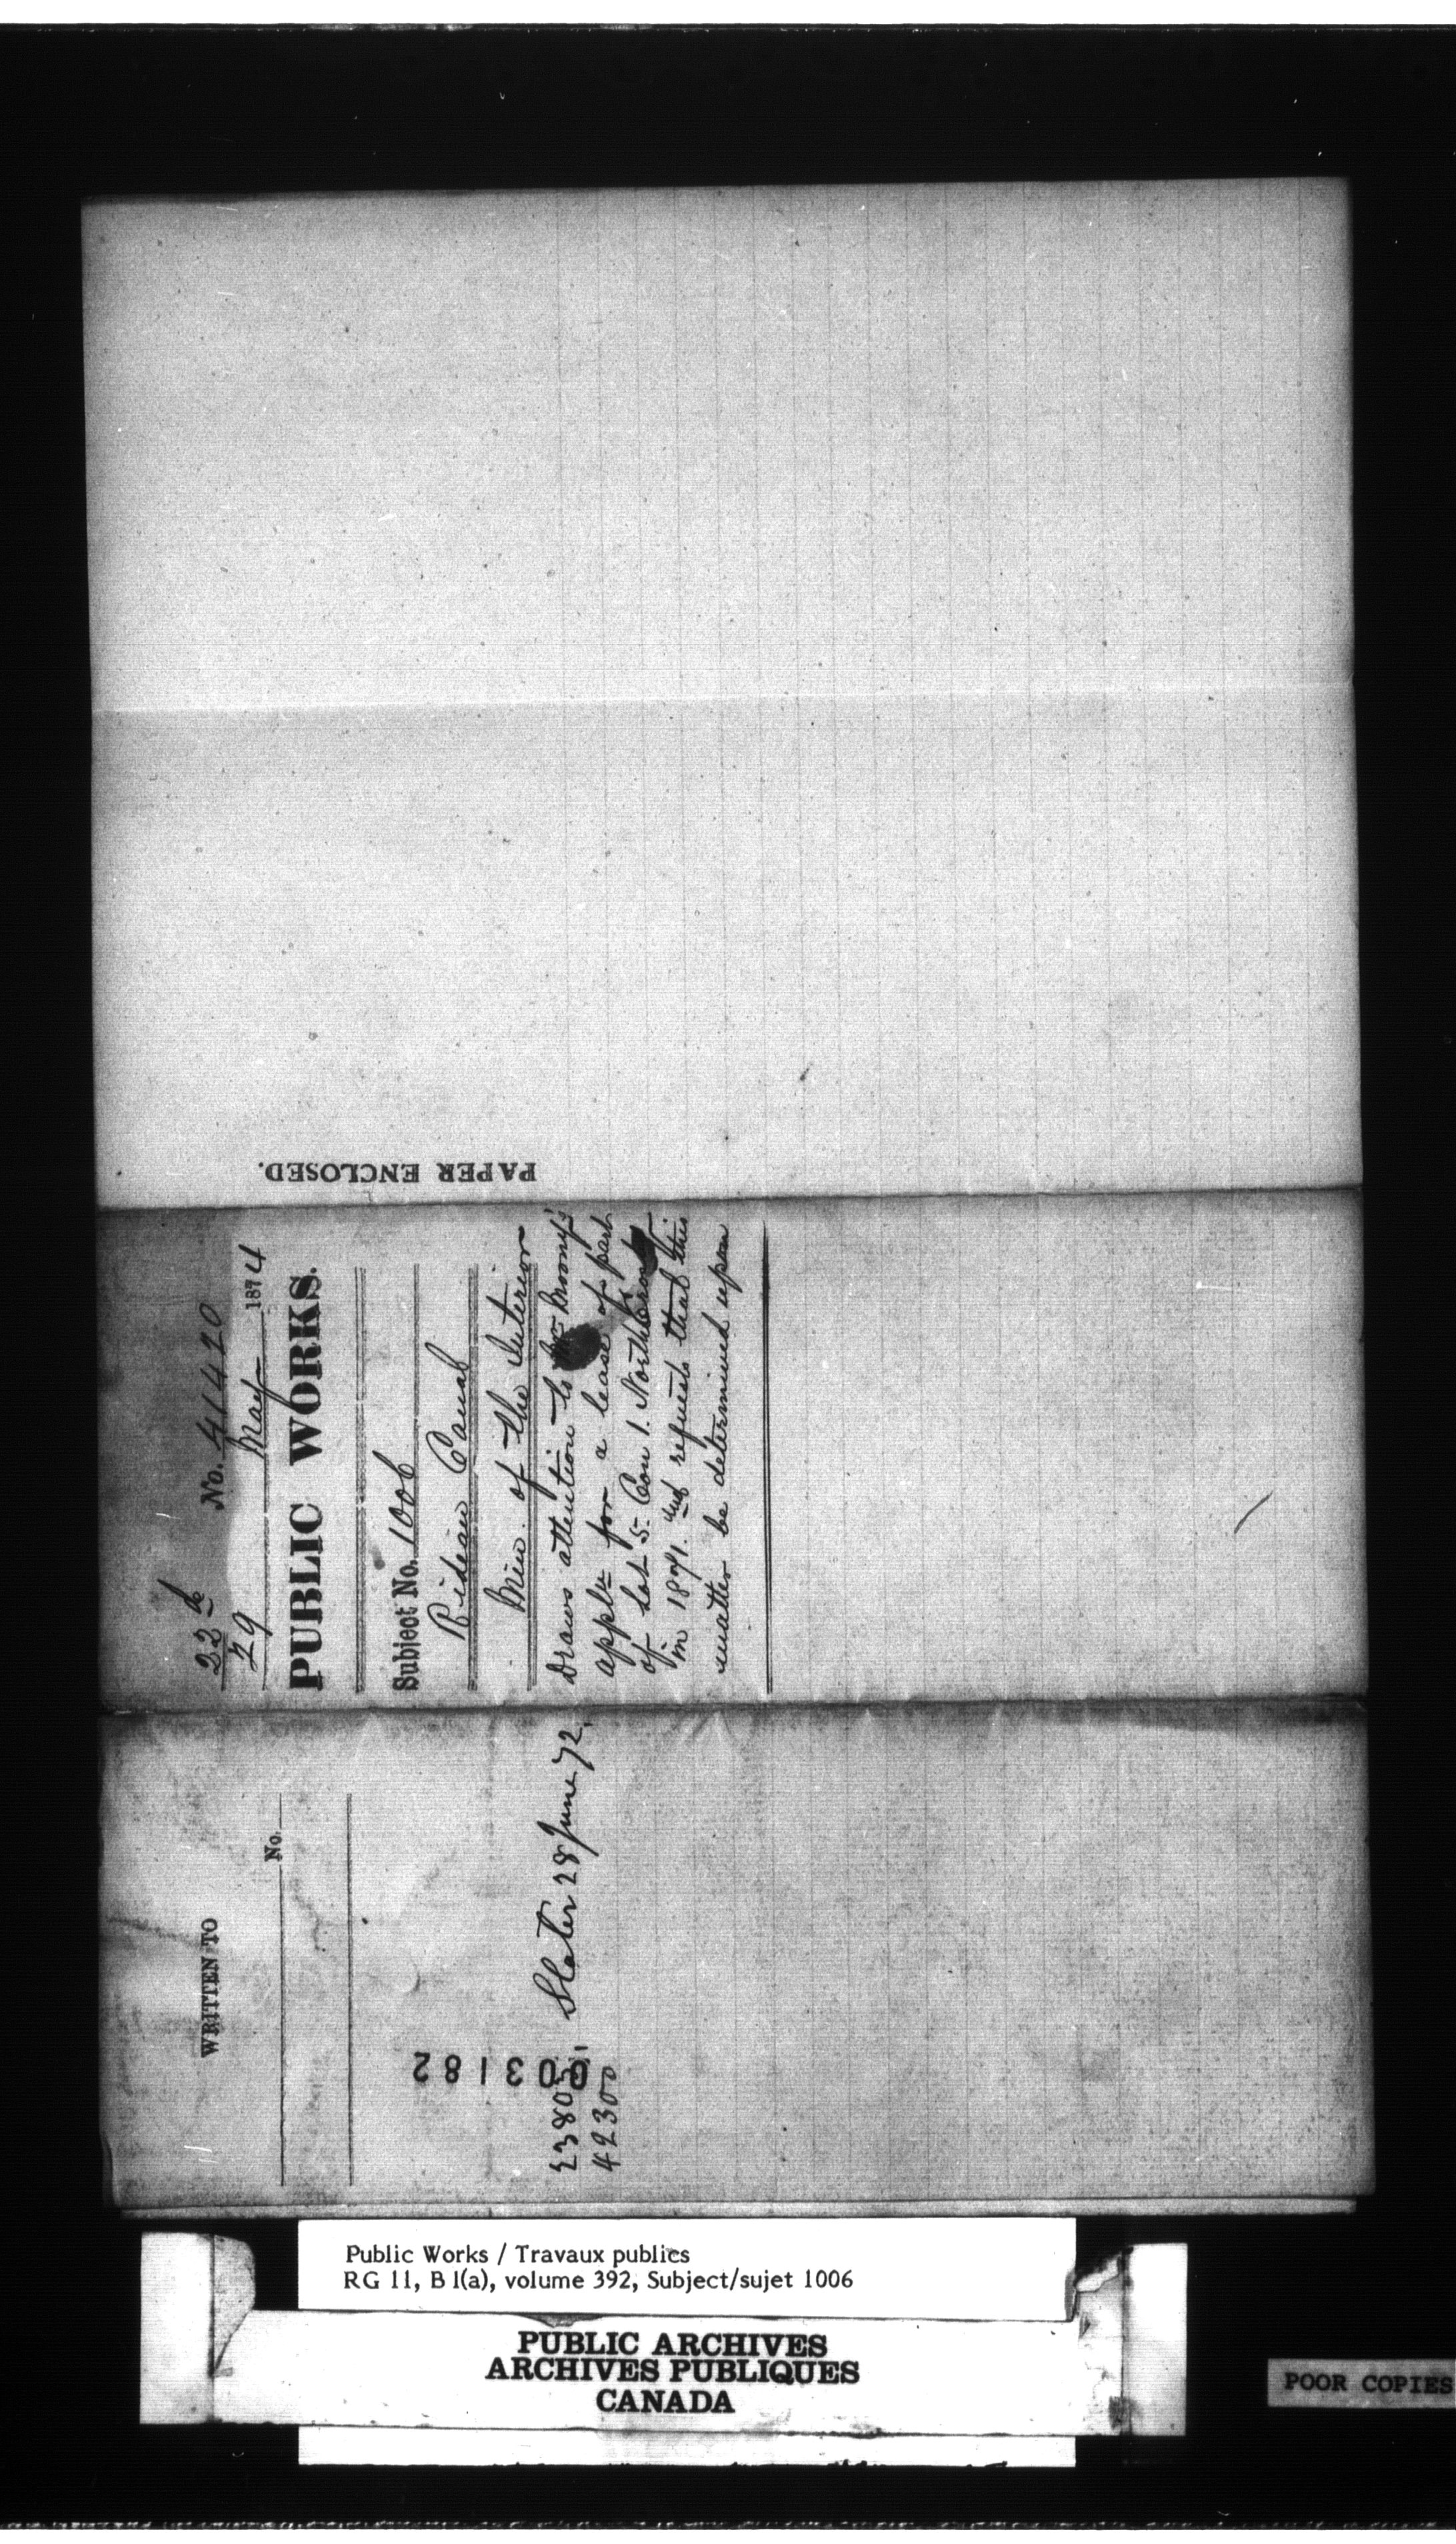 PAPER ENCLOSED.
22d
No. 41420
29 May 1874
PUBLIC WORKS.
Subject No. 1006
Rideau Canal
Min. of the Interior
Draws attention to
appln for a lease of part
of Lot 5. Con 1. North Crosby
in 1871. and requests that this
matter be determined upon
WRITTEN TO
No.
003182
23805. Slater 28 June 72.
42300
Public Works / Travaux publics
RG 11, B 1(a), volume 392, Subject/sujet 1006
PUBLIC ARCHIVES
ARCHIVES PUBLIQUES
CANADA
POOR COPIES